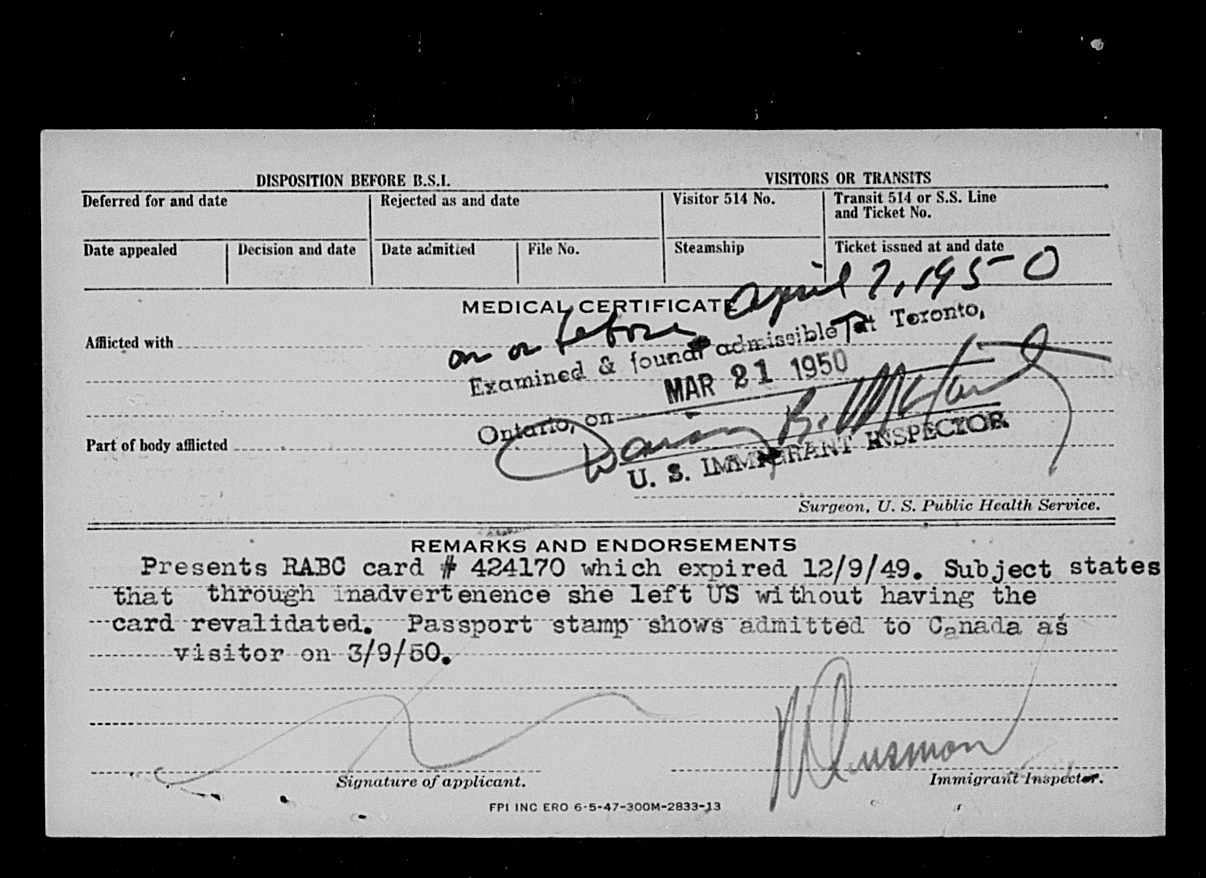 DISPOSITION BEFORE B.S.I.
VISITORS OR TRANSITS
Deferred for and date
Rejected as and date
Visitor 514 No.
Transit 514 or S.S. Line
and Ticket No.
Date appealed
Decision and date
Date admitted
File No.
Steamship
Ticket issued at and date
MEDICAL CERTIFICATE
on or before April 7, 1950
Afflicted with
Examined & found admissible at Toronto,
Ontario, on MAR 21 1950
Part of body afflicted
U. S. IMMIGRANT INSPECTOR
Surgeon, U. S. Public Health Service.
REMARKS AND ENDORSEMENTS
Presents RABC card # 424170 which expired 12/9/49. Subject states
that through inadvertenence she left US without having the
card revalidated. Passport stamp shows admitted to Canada as
visitor on 3/9/50.
Signature of applicant.
Immigrant Inspector.
FPI INC ERO 6-5-47-300M-2833-13